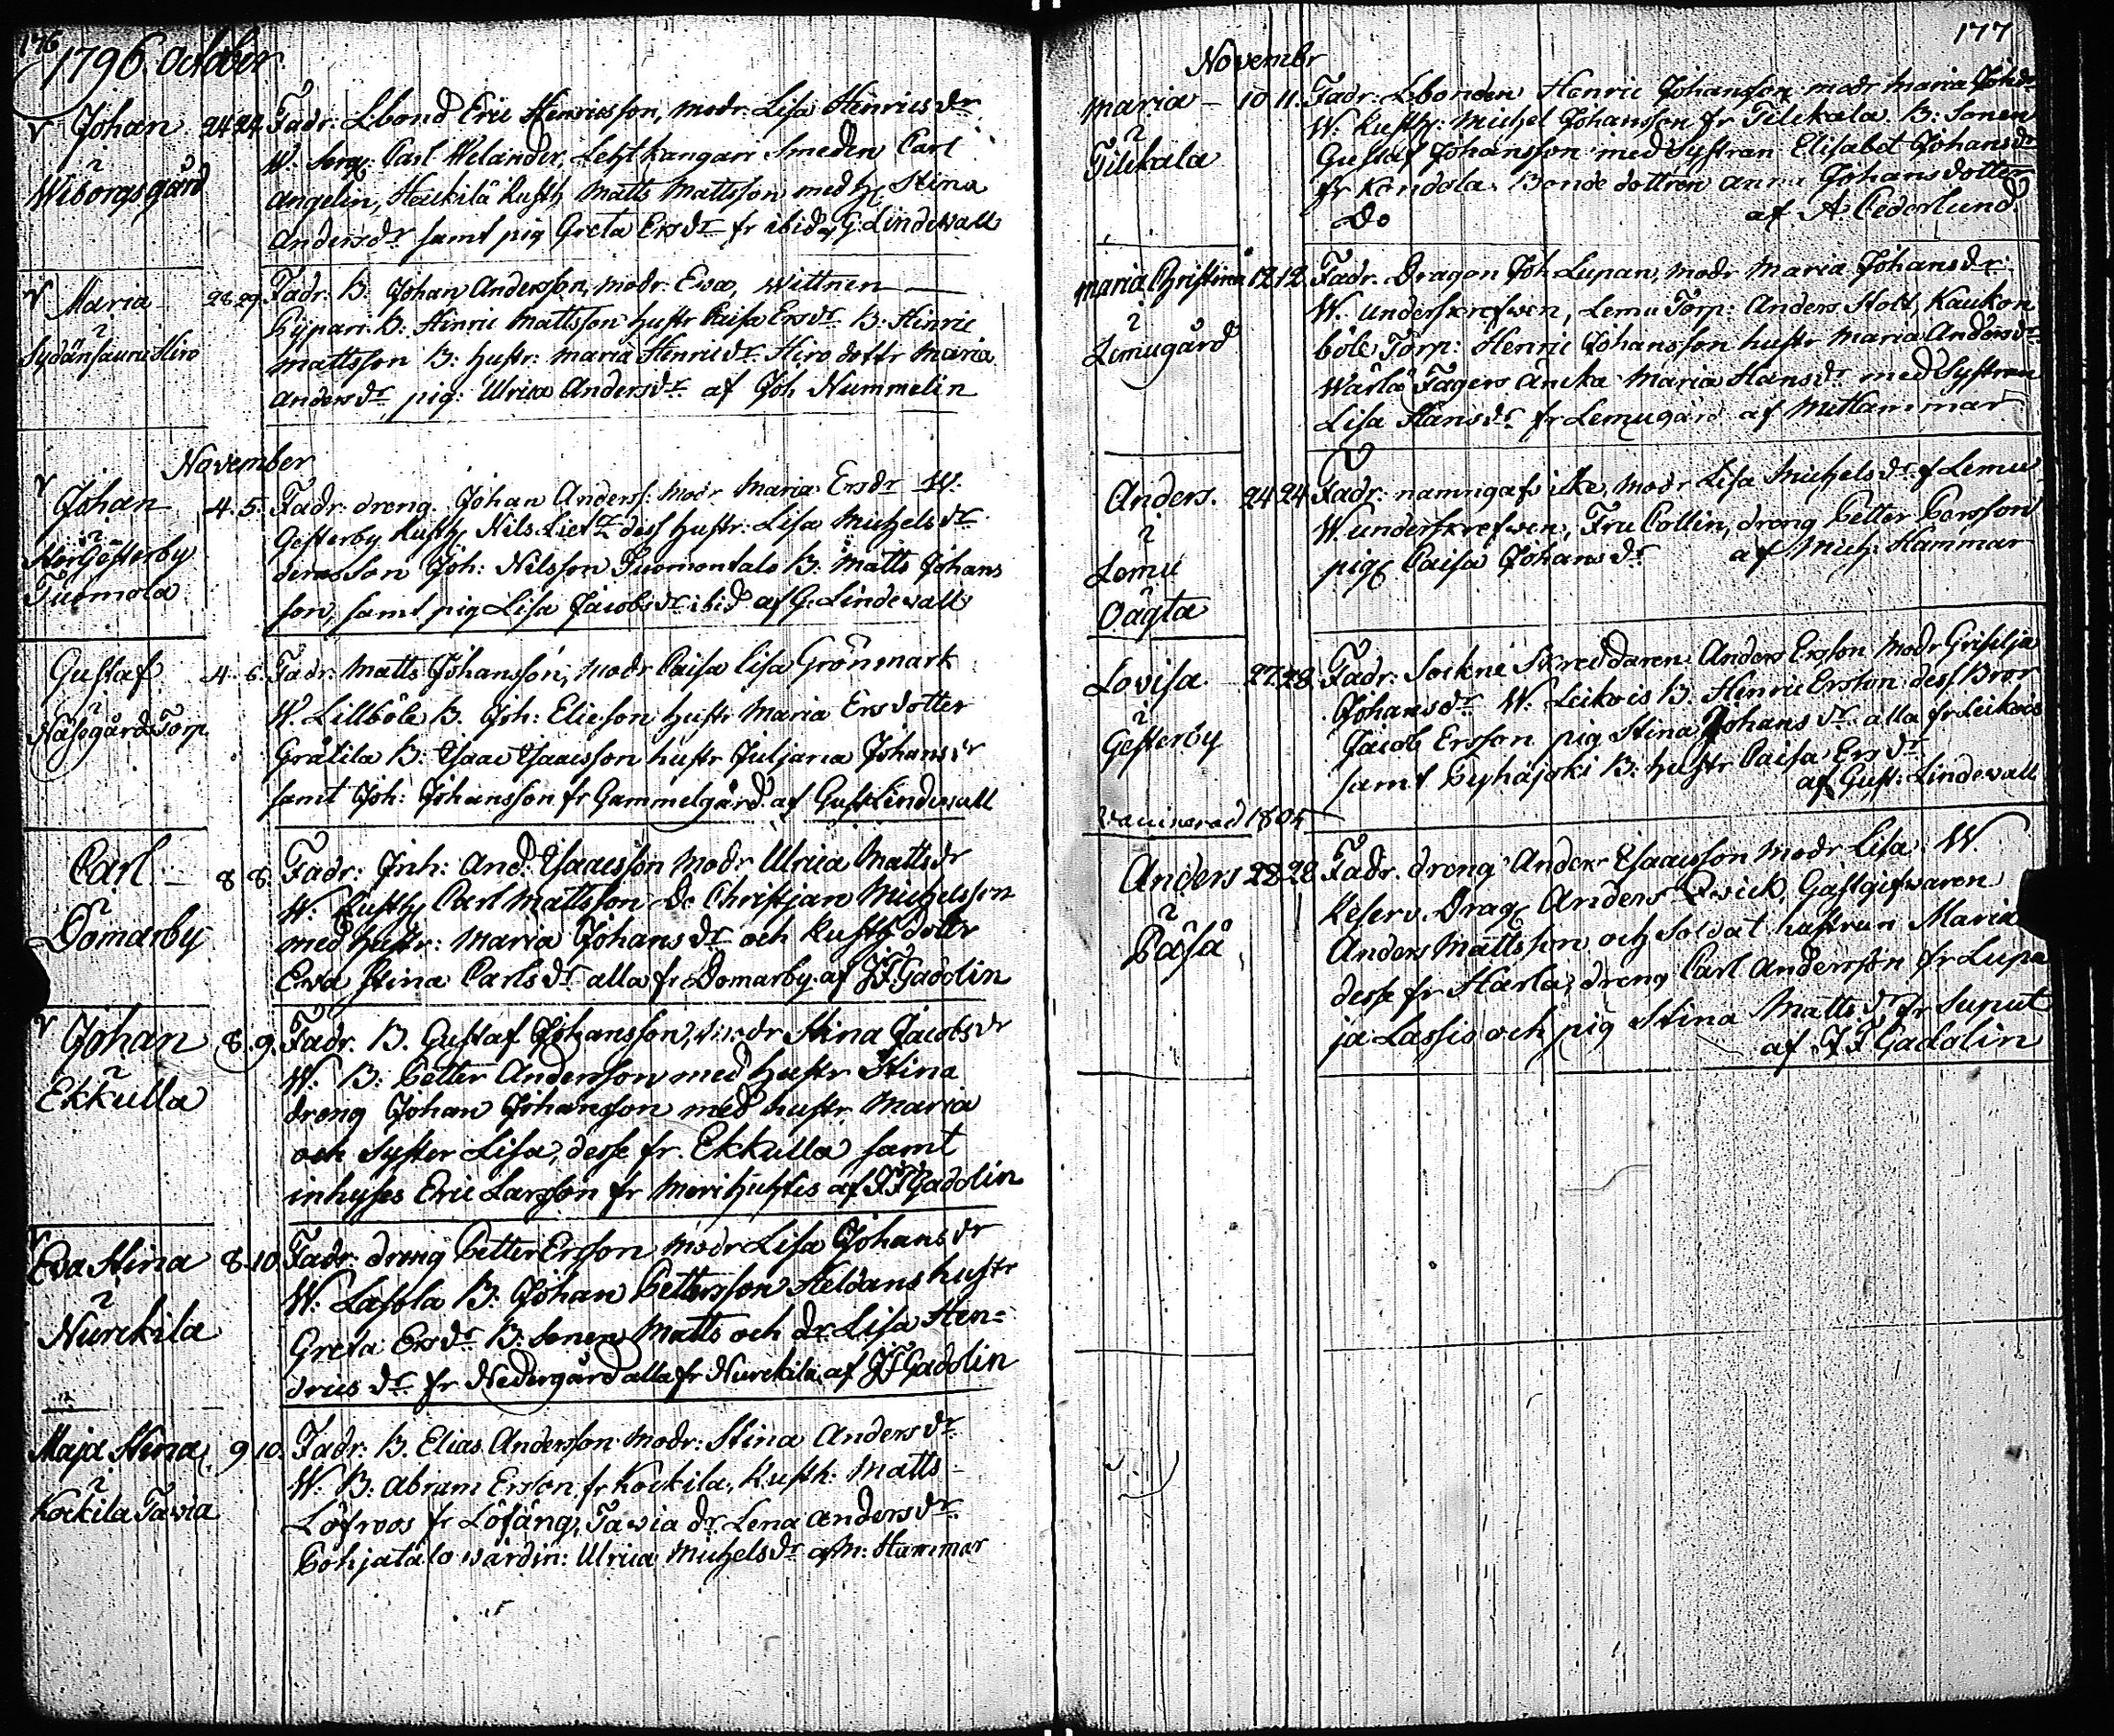 176
1796. October
Johan 24 24. Fadr. Lbond Eric Henricsson, modr. Lisa Henrics dr
i W. Serg: Carl Welander, Letztkangari Smeden Carl
Wiborgsgård Angelin, Haukila Rusth Matts Mattsson med h. Stina
Anders dr samt pig Greta Ers dr fr ibid af G: Lindewall
Maria 28 29. Fadr. B. Johan Andersson, modr. Eva, Wittnen
i Pijpari B: Hinric Mattsson hustr Caisa Ers dr B: Hinric
Sydänsauru Hiro Mattsson B: hustr: Maria Henrics dr Hiro dottr Maria
Anders dr, pig: Ulrica Anders dr af Joh Nummelin
November
Johan 4. 5. Fadr. dreng Johan Anderss: Modr Maria Ers dr W.
i Gesterby Rusth Nils Lietz dess hustr: Lisa Michels dr
Stor Gesterby deras Son Joh: Nilsson Puomontalo B: Matts Johans
Tuomola son, samt pig Lisa Jacobs dr ibid af G: Lindewall
Gustaf 4. 6. Fadr. Matts Johansson, Modr Caisa Lisa Grönmark
i W. Lillböle B. Joh: Elieson hustr Maria Ersdotter
Näsegård Torp Gråtila B: Isaac Isaacsson hustr Juljana Johans dr
samt Joh: Johansson fr Gammelgård af Gust Lindewall
Carl 8 8. Fadr: Inh: And: Isaacsson Modr Ulrica Matts dr
i W: Rusth Carl Mattsson Do Christjan Michelsson
Domarby med hustr: Maria Johans dr och Rusth dottr
Eva Stina Carls dr alla fr Domarby af J F Gadolin
Johan 8. 9. Fadr. B. Gustaf Johansson, Modr Stina Jacobs dr
i W: B: Petter Andersson med hustr Stina
Ekkulla dreng Johan Johansson med hustr Maria
och Syster Lisa, desse fr. Ekkulla samt
inhyses Eric Larsson fr Merihuhtis af J F Gadolin
Eva Stina 8. 10. Fadr: dreng Petter Ersson Modr Lisa Johans dr
i W: Lasola B: Johan Pettersson Heldans hustr
Nurekila Greta Ers dr B: Sonen Matts och dr Lisa Hen=
drics dr fr Nedergård alla fr Nurekila af J F Gadolin
Maja Stina 9 10. Fadr: B. Elias Andersson Modr: Stina Anders dr
i W. B: Abram Ersson fr Kockila, Rusth: Matts
Kockila Tawia Löfroos fr Löfäng, Tawia dr Lena Anders dr
Pohjatalo wärdin: Ulrica Michels dr af M: Hammar
177
Novembr
Maria 10 11. Fadr: Lbonden Henric Johansson modr Maria Joh dr
i W: Rusth: Michel Johansson fr Tilekala B: Sonen
Tilekala Gustaf Johansson med Systran Elisabet Johans dr
fr Kandola. Bonde dottren Anna Johansdotter
Do af A Cederlund
Maria Christina 12 12. Fadr. Dragon Joh Lupan, modr Maria Johans dr
i W. underskrefwen, Lemu Torp: Anders Holt, Kaukon
Lemugård böle Torp: Henric Johansson hustr Maria Anders dr
Wärlä Fagers äncka Maria Hans dr med Systran
Lisa Hans dr fr Lemugård af M Hammar
Anders. 24 24 Fadr: namngafs icke, Modr Lisa Michels dr f Lemu
i W underskrefwen, Fru Collin, dreng Petter Persson
Lemu pig Caisa Johans dr af Mich: Hammar
Oägta
Lovisa 27 28 Fadr: Sockne Skreddaren Anders Ersson Modr Griselja
i Johans dr W: Leikois B: Henric Ersson dess Bror
Gesterby Jacob Ersson pig Stina Johans dr alla fr Leikois
samt Pyhajoki B: hustr Caisa Ers dr
af Gust: Lindewall
Vaccinerad 1805
Anders 28 28 Fadr. dreng Anders Isaacsson Modr Lisa W.
i Reserv. Drag Anders Qvick, Gästgifwaren
Påså Anders Mattsson och Soldat hustrun Maria
desse fr Harla, dreng Carl Andersson fr Lupa
ja Lassis och pig Stina Matts dr fr Suput
af J F Gadolin